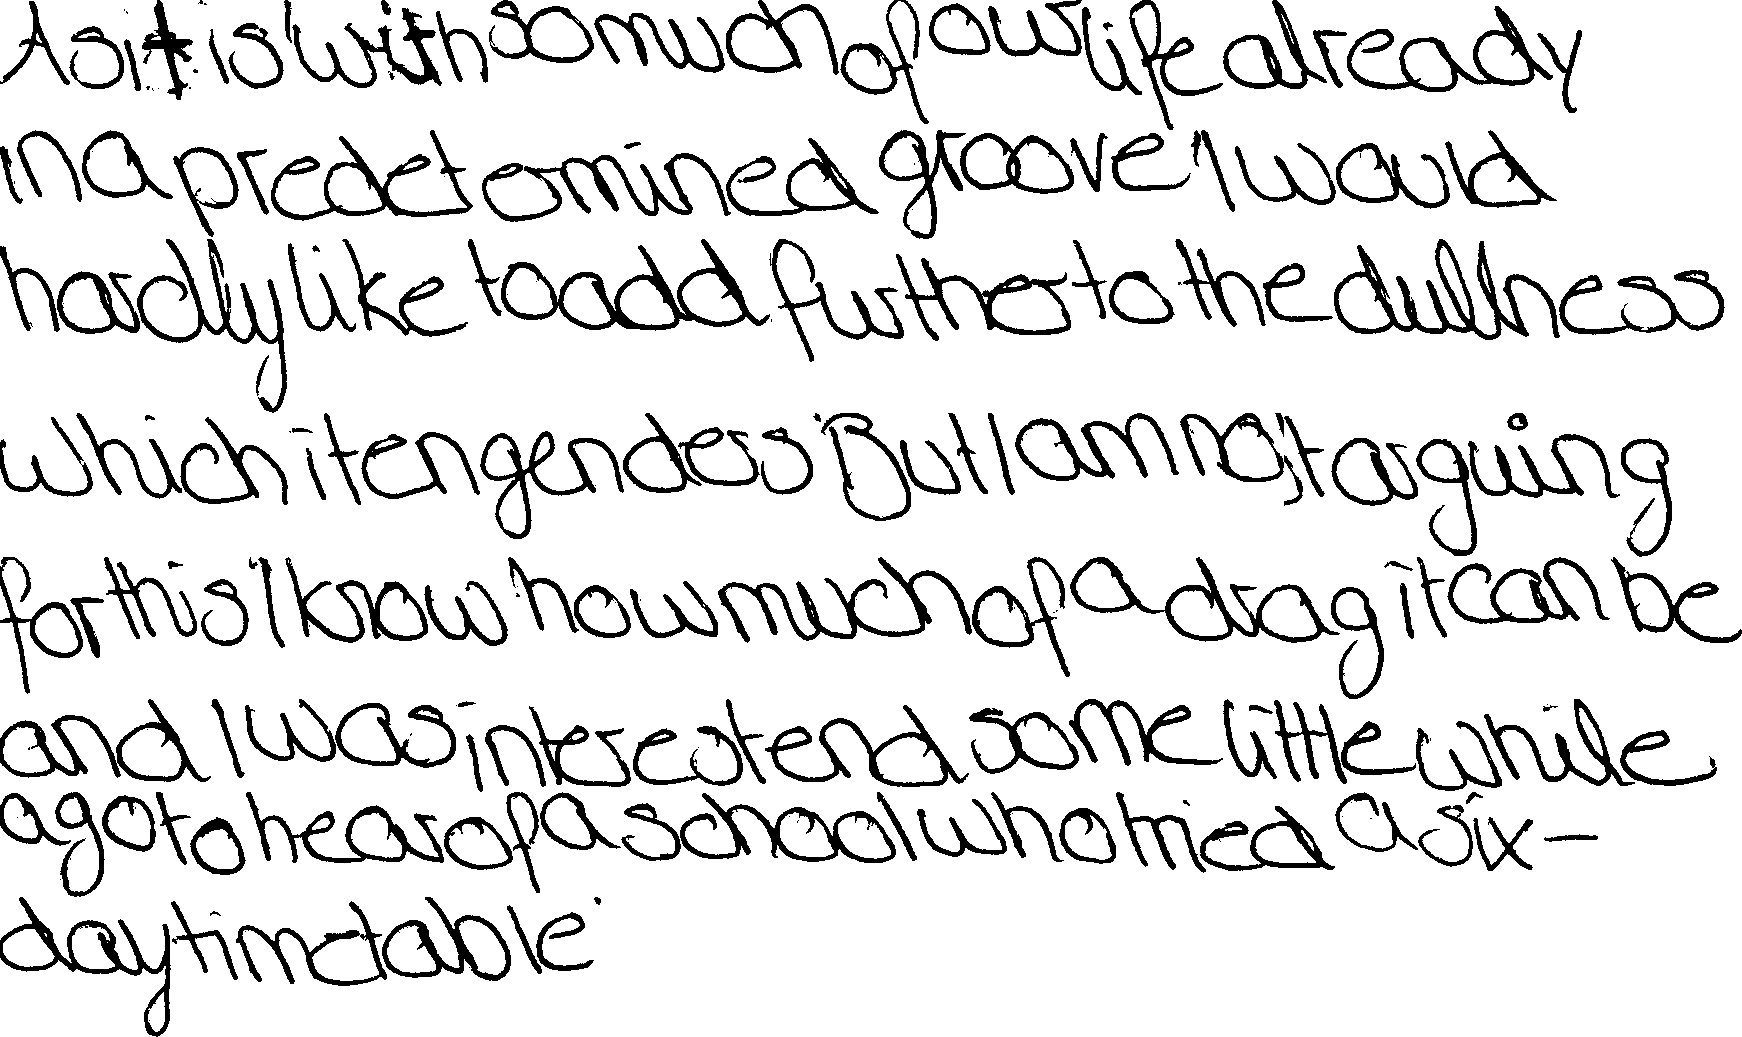 As it is with so much of our life already
in a predetermined groove I would
hardly like to add further to the dullness
which it engenders. But I am not arguing
for this. I know how much of a drag it can be
and I was interestend some little while
ago to hear of a school who tried a six-
day timetable.